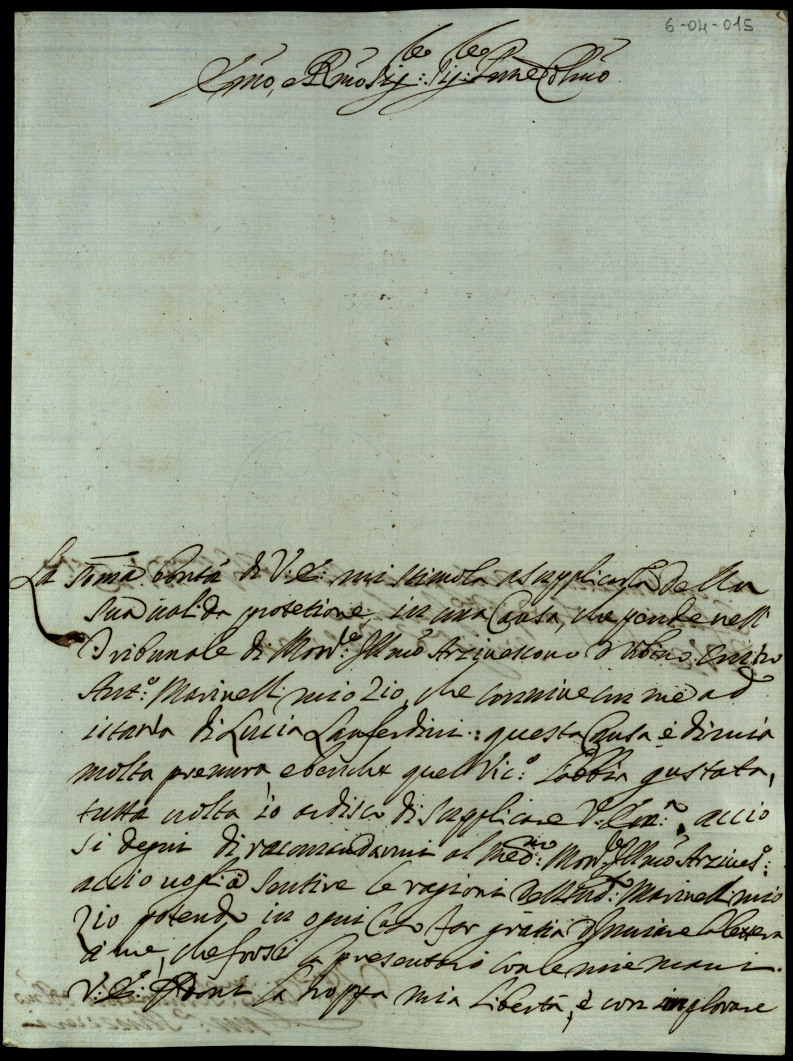 6-04-015
Em̃o, e Rm̃o Sig:re Sig:re Prne Col̃mo
La som̃a bontà di V: E: mi stimola a supplicarla della
sua valida protetione, in una Causa, che pende nell
Tribunale di Mons:re Illm̃o Arzivescovo d'Urbino contro
Ant:o Marinelli mio Zio, che convive con me ad
istanza di Lucia Lanferdini: questa Causa è di mia
molta premura, e benche quel Vic:o l'abbia gustata,
tutta volta io ardisco di supplicare V: Em:a, accio
si degni di racomandarmi al med:mo Mons:re Illm̃o Arzives:o
accio voglia sentire le ragioni dell sud:o Marinelli mio
Zio potendo in ogni caso far gratia d'inviare la lettera
a me, che forsi la presentarò con le mie mani.
V: E: doni la troppa mia libertà, e con implorare